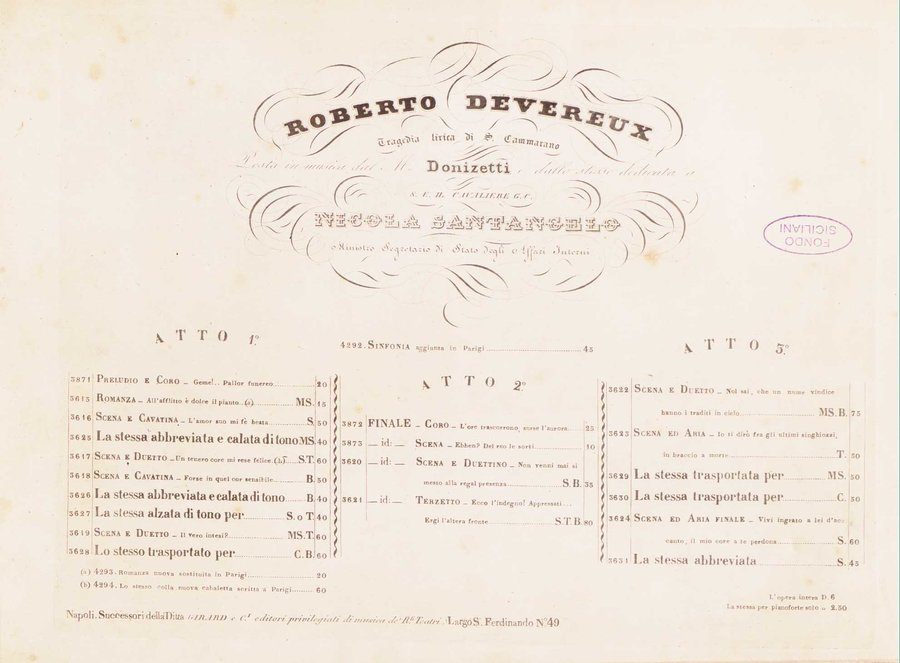 ROBERTO DEVEREUX
Tragedia lirica di S. Cammarano
Posta in musica dal M. Donizetti e dallo stesso dedicata a
S. E. IL CAVALIERE G. C.
NICOLA SANTANGELO
Ministro Segretario di Stato degli Affari Interni
FONDO
SICILIANI
ATTO 1º.
4292. SINFONIA aggiunta in Parigi 45
3871 PRELUDIO E CORO _ Geme!.. Pallor funereo 20
3615 ROMANZA _ All'afflitto è dolce il pianto _(a) MS. 15
3616 SCENA E CAVATINA _ L'amor suo mi fe beata S. 50
3625 La stessa abbreviata e calata di tono MS. 40
3617 SCENA E DUETTO _ Un tenero core mi rese felice. (b) S.T. 60
3618 SCENA E CAVATINA _ Forse in quel cor sensibile B. 50
3626 La stessa abbreviata e calata di tono B. 40
3627 La stessa alzata di tono per S. o T. 40
3619 SCENA E DUETTO _ Il vero intesi? MS.T. 60
3628 Lo stesso trasportato per C.B. 60
(a) 4293. Romanza nuova sostituita in Parigi 20
(b) 4294. Lo stesso colla nuova cabaletta scritta a Parigi 60
ATTO 2º.
3872 FINALE _ CORO _ L'ore trascorrono, surse l'aurora 25
3873 _ id: _ SCENA _ Ebben? Del reo le sorti 10
3620 _ id: _ SCENA E DUETTINO _ Non venni mai sì
mesto alla regal presenza S.B. 35
3621 _ id: _ TERZETTO _ Ecco l'indegno! Appressati...
Ergi l'altera fronte S.T.B. 80
ATTO 3º.
3622 SCENA E DUETTO _ Nol sai, che un nume vindice
hanno i traditi in cielo MS.B. 75
3623 SCENA ED ARIA _ Io ti dirò fra gli ultimi singhiozzi,
in braccio a morte T. 50
3629 La stessa trasportata per MS. 50
3630 La stessa trasportata per C. 50
3624 SCENA ED ARIA FINALE _ Vivi ingrato a lei d'ac-
canto, il mio core a te perdona S. 60
3631 La stessa abbreviata S. 45
L'opera intera D. 6
La stessa per pianoforte solo „ 2.50
Napoli. Successori della Ditta GIRARD e C.i editori privilegiati di musica de' Rli. Teatri, Largo S. Ferdinando Nº 49